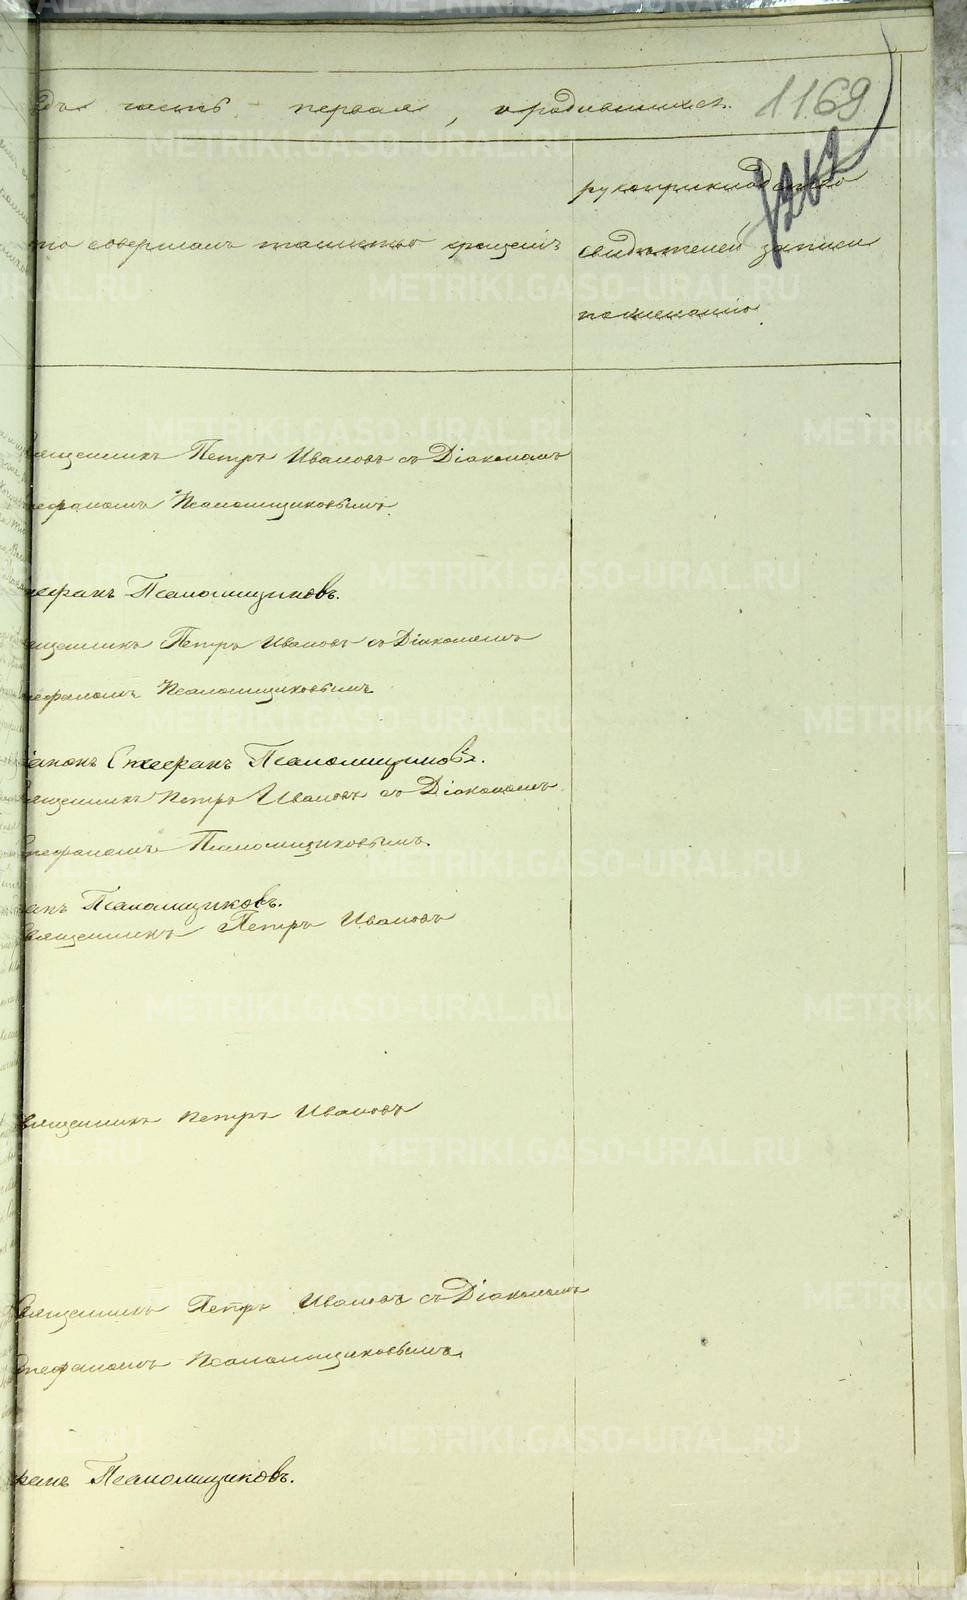 часть первая, о родившихся. 1169
1262
рукоприкладство
совершалъ таинство крещенія
свидѣтелей записи
по желанію
Священникъ Петръ Ивановъ съ Діакономъ
Стефаномъ Псаломщиковымъ
Стефанъ Псаломщиковъ.
Священникъ Петръ Ивановъ съ Діакономъ
Стефаномъ Псаломщиковымъ
Діаконъ Стефанъ Псаломщиковъ.
Священникъ Петръ Ивановъ съ Діакономъ
Стефаномъ Псаломщиковымъ.
анъ Псаломщиковъ.
Священникъ Петръ Ивановъ
Священникъ Петръ Ивановъ
Священникъ Петръ Ивановъ съ Діакономъ
Стефаномъ Псаломщиковымъ.
фанъ Псаломщиковъ.
METRIKI.GASO-URAL.RU